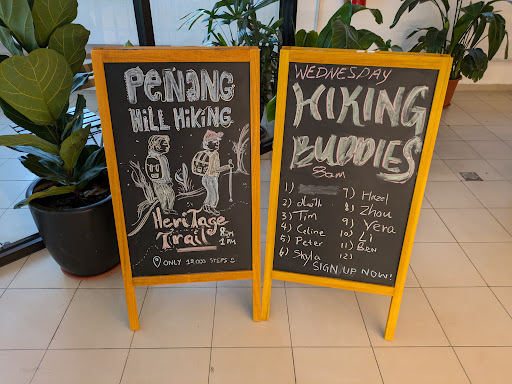 PENANG
HiLL HiKiNG
HeriTage
Trail
8am
1PM
ONLY 12000 STEPS
WEDNESDAY
HIKING
BUDDIES
8am
1)
2)
3) Tim
4) Celine
5) Peter
6) Skyla
7) Hazel
8) Zhou
9) Vera
10) Li
11) Ben
12)
SIGN UP NOW!